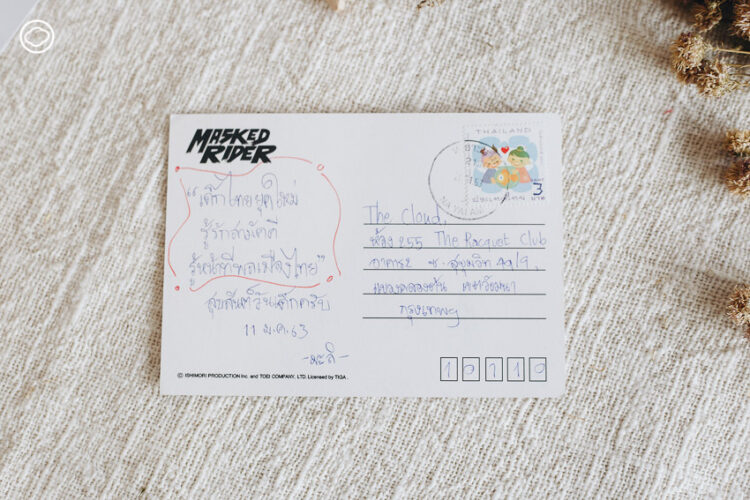 MASKED
RIDER
"เด็กไทยยุคใหม่
รู้รักสามัคคี
รู้หน้าที่พลเมืองไทย"
สุขสันต์วันเด็กครับ
11 ม.ค. 63
-มะลิ-
© ISHIMORI PRODUCTION Inc. and TOEI COMPANY, LTD. Licensed by TIGA.
THAILAND
3
บาท
ประเทศไทย
The Cloud,
ห้อง 255 The Racquet Club
อาคาร 2 ซ.สุขุมวิท 49/9,
แขวงคลองตัน เขตวัฒนา
กรุงเทพฯ
10110